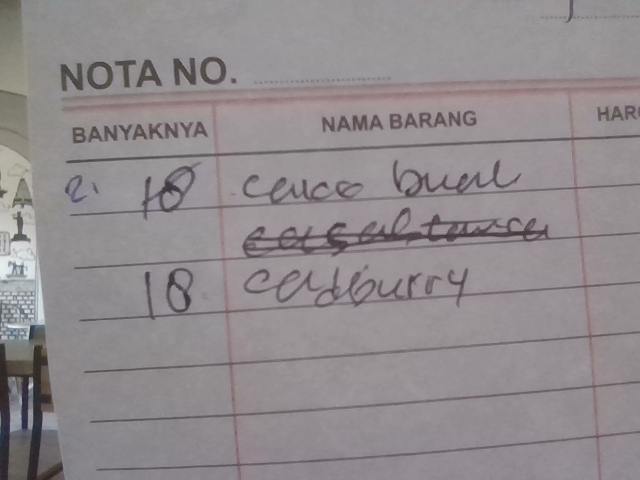 NOTA NO.
BANYAKNYA NAMA BARANG HARG
2. 18 buel
18 cadburry